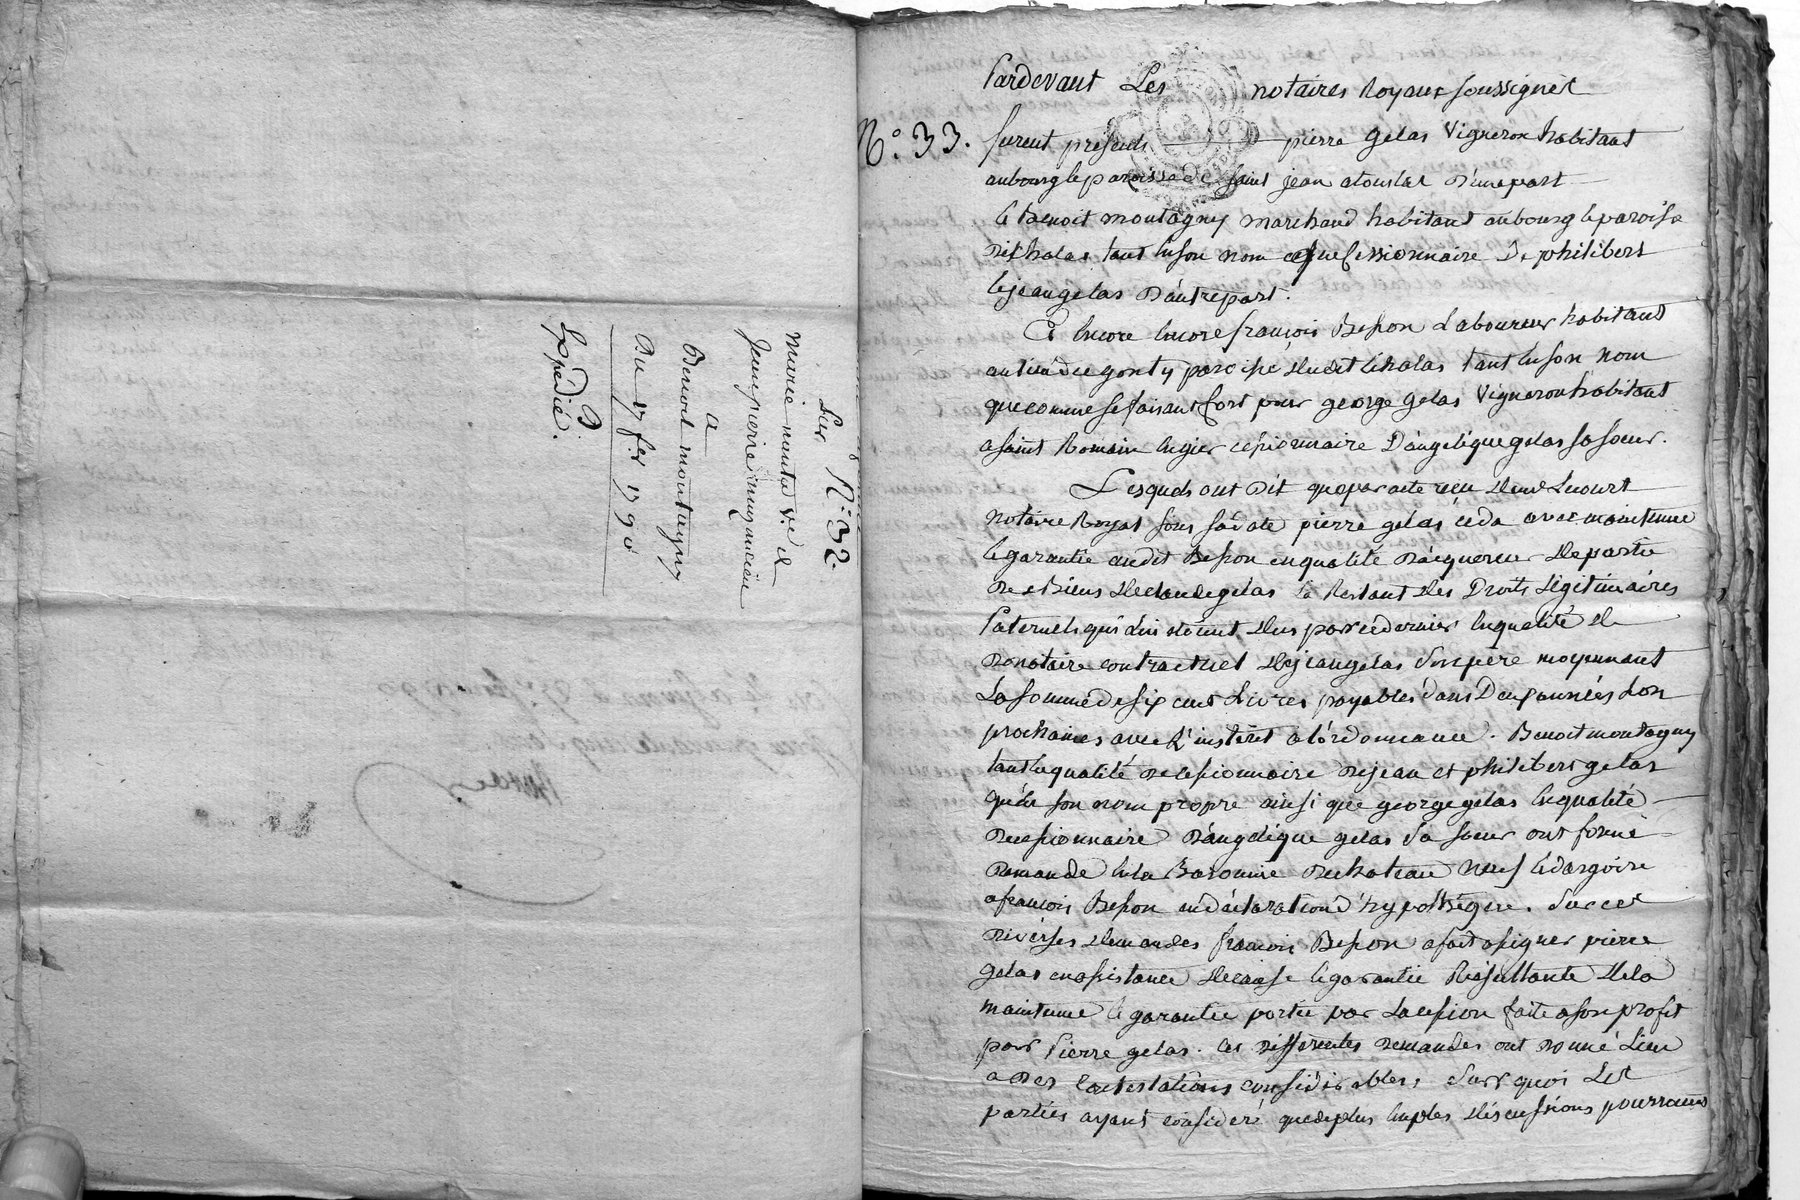 N.º 32.
Marie menta v.e d
jeune pierre
a
Benoit montagny
Du 17 fer 1790
Expédié.
Pardevant Les notaires Royaux soussignés
N.º 33. furent presents pierre gelas Vigneron habitant
au bourg & paroisse de saint jean a toulas d'une part
& benoit montagny marchand habitant au bourg & paroisse
dechalas tant en son nom que cessionnaire De philibert
& jean gelas D'autre part.
Et encore encore françois Besson Laboureur habitant
au lieu du gonty paroisse dudit Echalas tant en son nom
que comme se faisant fort pour george gelas Vigneron habitant
a saint Romain en gier cessionnaire D'angelique gelas sa soeur.
Lesquels ont Dit que par acte reçu
notaire Royal sous sa date pierre gelas ceda avec maintenue
& garantie audit Besson en qualité D'acquereur de partie
des Biens de claude gelas le Restant des Droits Légitimaires
Paternels qui lui étoient dus par ce dernier en qualité de
Donataire contractuel de jean gelas son père moyennant
La somme de six cent Livres payables dans Deux années Lors
prochaines avec L'intérêt a l'ordonnance. Benoit montagny
tant en qualité de cessionnaire de jean et philibert gelas
qu'en son nom propre ainsi que george gelas en qualité
de cessionnaire D'angelique gelas sa soeur ont formé
Demande en la Baronnie de chateau neuf & dargoire
a françois Besson en déclaration d'hypothèque. Sur ces
diverses demandes françois Besson a fait assigner pierre
gelas en assistance de cause & garantie Résultante de la
maintenue & garantie portée par La cession faite a son profit
par Pierre gelas. Ces différentes demandes ont donné Lieu
a Des Contestations considérables, Sur quoi Les
parties ayant considéré que de plus amples discussions pourroient